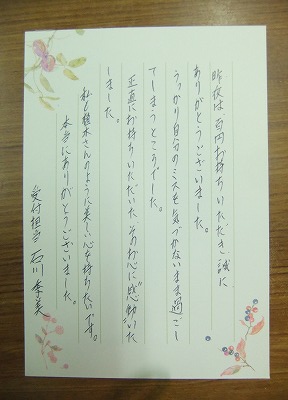 昨夜は、百円お持ちいただき誠に
ありがとうございました。
うっかり自分のミスを気づかないまま過ごし
てしまうところでした。
正直にお持ちいただいた、そのお心に感動いた
しました。
私も植木さんのように美しい心を持ちたいです。
本当にありがとうございました。
受付担当 石川 季美